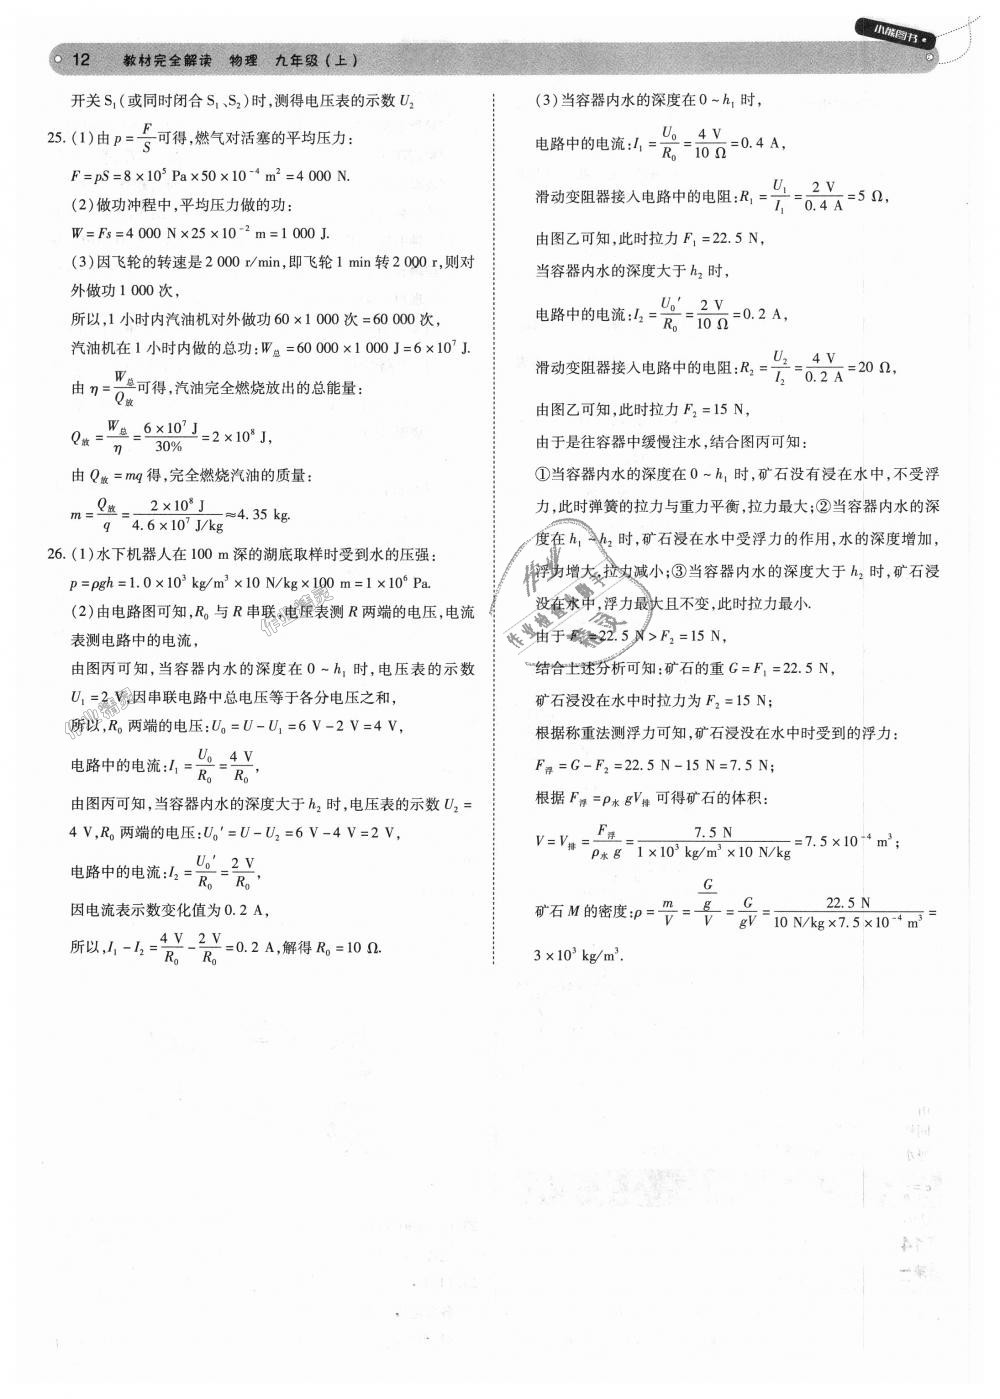 小熊图书
12 教材完全解读 物理 九年级(上)
开关 S₁(或同时闭合 S₁、S₂)时,测得电压表的示数 U₂
25. (1)由 p = F/S 可得,燃气对活塞的平均压力:
F = pS = 8×10⁵ Pa×50×10⁻⁴ m² = 4 000 N.
(2)做功冲程中,平均压力做的功:
W = Fs = 4 000 N×25×10⁻² m = 1 000 J.
(3)因飞轮的转速是 2 000 r/min,即飞轮 1 min 转 2 000 r,则对
外做功 1 000 次,
所以,1 小时内汽油机对外做功 60×1 000 次 = 60 000 次,
汽油机在 1 小时内做的总功:W总 = 60 000×1 000 J = 6×10⁷ J.
由 η = W总/Q放 可得,汽油完全燃烧放出的总能量:
Q放 = W总/η = 6×10⁷ J/30% = 2×10⁸ J,
由 Q放 = mq 得,完全燃烧汽油的质量:
m = Q放/q = 2×10⁸ J/4.6×10⁷ J/kg ≈ 4.35 kg.
26. (1)水下机器人在 100 m 深的湖底取样时受到水的压强:
p = ρgh = 1.0×10³ kg/m³×10 N/kg×100 m = 1×10⁶ Pa.
(2)由电路图可知,R₀ 与 R 串联,电压表测 R 两端的电压,电流
表测电路中的电流,
由图丙可知,当容器内水的深度在 0~h₁ 时,电压表的示数
U₁ = 2 V,因串联电路中总电压等于各分电压之和,
所以,R₀ 两端的电压:U₀ = U - U₁ = 6 V - 2 V = 4 V,
电路中的电流:I₁ = U₀/R₀ = 4 V/R₀,
由图丙可知,当容器内水的深度大于 h₂ 时,电压表的示数 U₂ =
4 V,R₀ 两端的电压:U₀′ = U - U₂ = 6 V - 4 V = 2 V,
电路中的电流:I₂ = U₀′/R₀ = 2 V/R₀,
因电流表示数变化值为 0.2 A,
所以,I₁ - I₂ = 4 V/R₀ - 2 V/R₀ = 0.2 A,解得 R₀ = 10 Ω.
(3)当容器内水的深度在 0~h₁ 时,
电路中的电流:I₁ = U₀/R₀ = 4 V/10 Ω = 0.4 A,
滑动变阻器接入电路中的电阻:R₁ = U₁/I₁ = 2 V/0.4 A = 5 Ω,
由图乙可知,此时拉力 F₁ = 22.5 N,
当容器内水的深度大于 h₂ 时,
电路中的电流:I₂ = U₀′/R₀ = 2 V/10 Ω = 0.2 A,
滑动变阻器接入电路中的电阻:R₂ = U₂/I₂ = 4 V/0.2 A = 20 Ω,
由图乙可知,此时拉力 F₂ = 15 N,
由于是往容器中缓慢注水,结合图丙可知:
①当容器内水的深度在 0~h₁ 时,矿石没有浸在水中,不受浮
力,此时弹簧的拉力与重力平衡,拉力最大;②当容器内水的深
度在 h₁~h₂ 时,矿石浸在水中受浮力的作用,水的深度增加,
浮力增大,拉力减小;③当容器内水的深度大于 h₂ 时,矿石浸
没在水中,浮力最大且不变,此时拉力最小.
由于 F₁ = 22.5 N > F₂ = 15 N,
结合上述分析可知:矿石的重 G = F₁ = 22.5 N,
矿石浸没在水中时拉力为 F₂ = 15 N;
根据称重法测浮力可知,矿石浸没在水中时受到的浮力:
F浮 = G - F₂ = 22.5 N - 15 N = 7.5 N;
根据 F浮 = ρ水gV排 可得矿石的体积:
V = V排 = F浮/ρ水g = 7.5 N/1×10³ kg/m³×10 N/kg = 7.5×10⁻⁴ m³;
矿石 M 的密度:ρ = m/V = G/g/V = G/gV = 22.5 N/10 N/kg×7.5×10⁻⁴ m³ =
3×10³ kg/m³.
作业精灵
作业精灵
作业
作业检查小助手
精灵